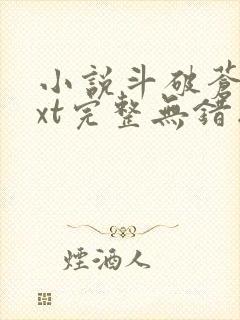 小說斗破蒼
xt完整無錯
煙酒人